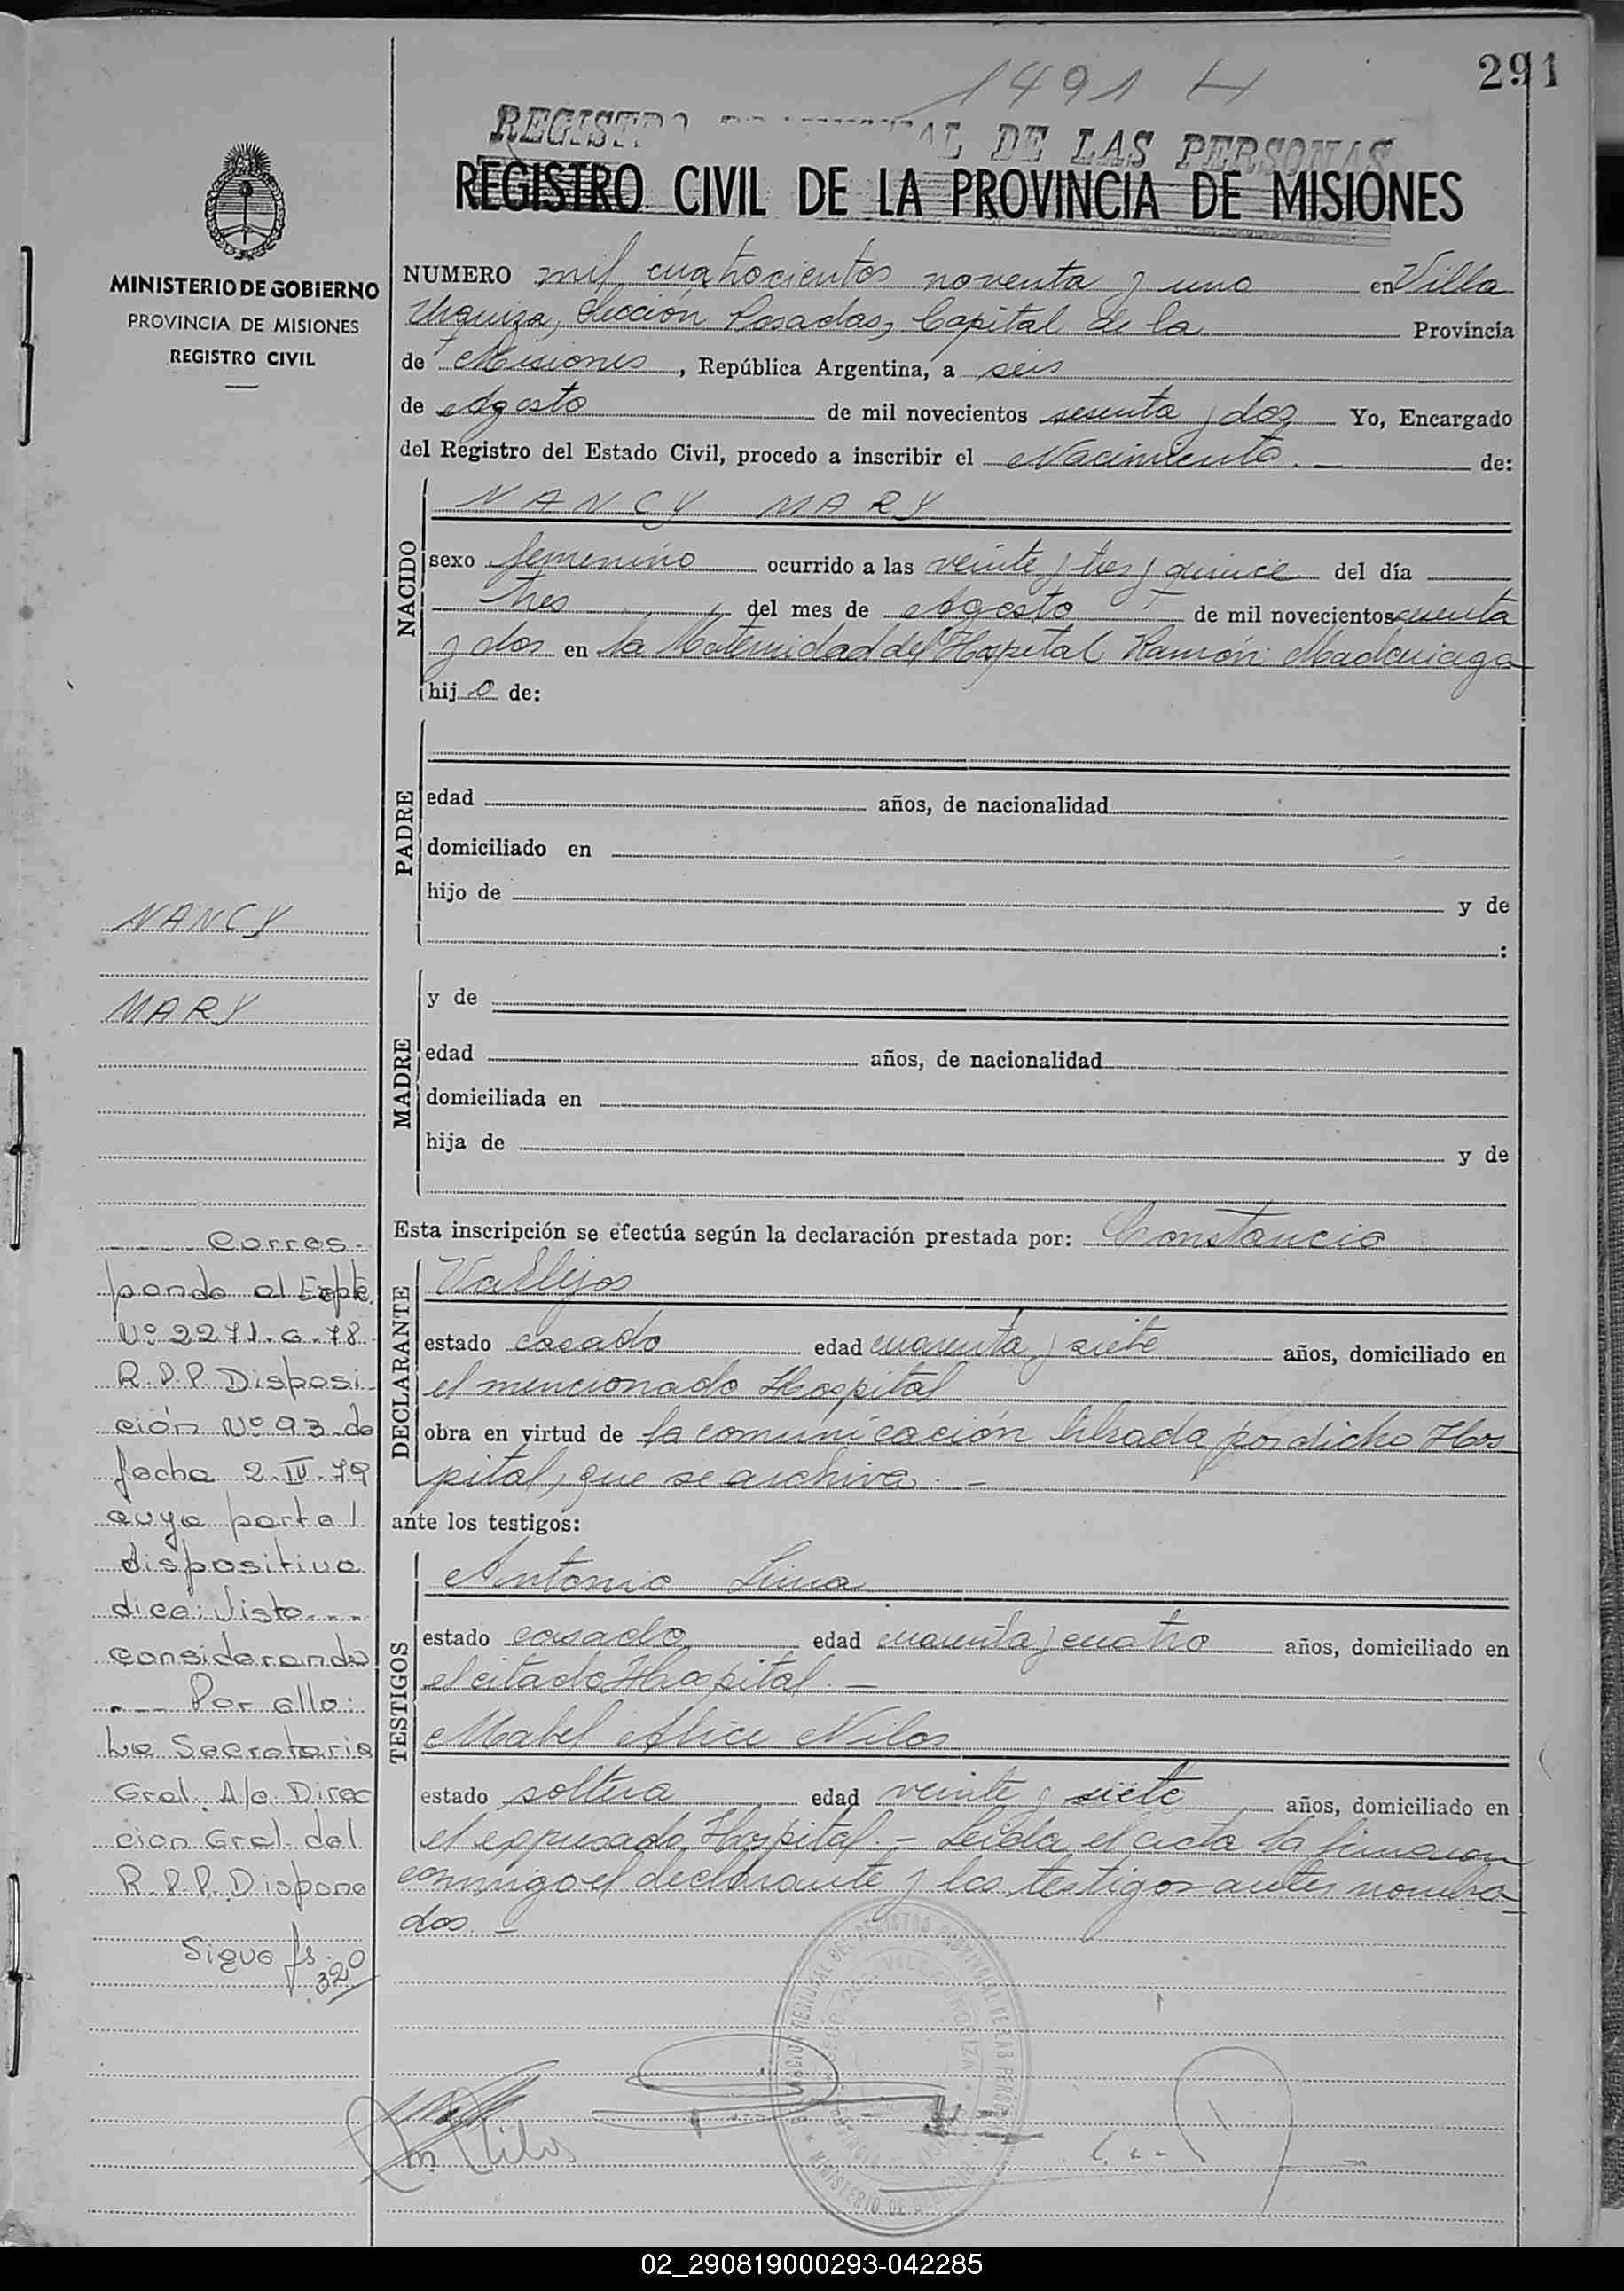 291
1491 H
REGISTRO PROVINCIAL DE LAS PERSONAS
REGISTRO CIVIL DE LA PROVINCIA DE MISIONES
MINISTERIO DE GOBIERNO
PROVINCIA DE MISIONES
REGISTRO CIVIL
NUMERO mil cuatrocientos noventa y uno en Villa
Urquiza, Sección Posadas, Capital de la Provincia
de Misiones, República Argentina, a seis
de Agosto de mil novecientos sesenta y dos Yo, Encargado
del Registro del Estado Civil, procedo a inscribir el Nacimiento. — de:
NACIDO
NANCY MARY
sexo femenino ocurrido a las veinte y tres y quince del día
tres, del mes de Agosto de mil novecientos sesenta
y dos en la Maternidad del Hospital Ramón Madariaga
hij o de:
PADRE
edad años, de nacionalidad
domiciliado en
hijo de y de
:
MADRE
y de
edad años, de nacionalidad
domiciliada en
hija de y de
Esta inscripción se efectúa según la declaración prestada por: Constancio
DECLARANTE
Vallejos
estado casado edad cuarenta y siete años, domiciliado en
el mencionado Hospital
obra en virtud de la comunicación librada por dicho Hos
pital, que se archiva. —
ante los testigos:
TESTIGOS
Antonio Lima
estado casado edad cuarenta y cuatro años, domiciliado en
el citado Hospital. —
Mabel Alice Nilos
estado soltera edad veinte y siete años, domiciliado en
el expresado Hospital. — Leída el acta la firmaron
conmigo el declarante y los testigos antes nombra
dos. —
NANCY
MARY
Corres-
ponde al Expte.
Nº 2271-G-78.
R.P.P. Disposi-
ción Nº 93 de
fecha 2-IV-79
cuya parte
dispositiva
dice: Visto...
considerando
Por ello:
La Secretaria
Gral. A/c Direc
cion Gral. del
R.P.P. Dispone
Sigue fs. 320
02_290819000293-042285